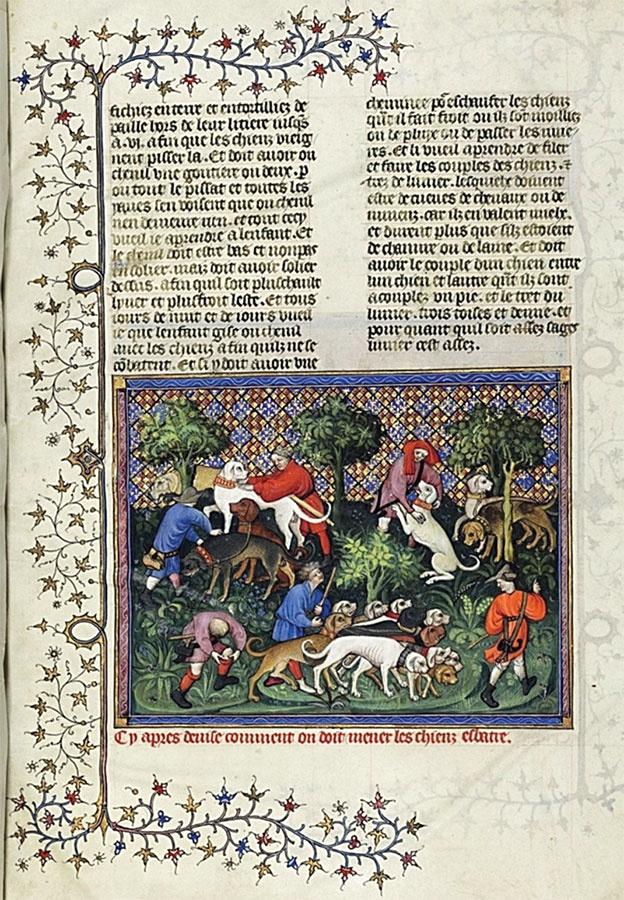 fichiez en terre et entortilliez de
paille hors de leur litiere iusqs
a .vi. a fin que les chienz vieig
nent pisser la. Et doit auoir ou
chenil vne goutiere ou deux. p
ou tout le pissat et toutes les
yaues sen voisent que ou chenil
nen demeure rien. et tout cecy
vueil ie aprendre a lenfant. Et
le chenil doit estre bas et non pas
en solier. maiz doit auoir solier
dessus. a fin quil soit plus chault
lyuer et plus froit leste. Et tous
iours de nuit et de iours vueil
ie que lenfant gise ou chenil
auec les chienz a fin quilz ne se
cōbatent. Et si y doit auoir vne
cheminee pō eschaufer les chienz
qūt il fait froit ou ilz sōt moilliez
ou de pluye ou de passer les riuie
res. Et li vueil aprendre de filer
et faire les couples des chienz. et
trez de limier. lesquelx doiuent
estre de cueues de cheuaux ou de
iumenz. car ilz en valent mielx.
et durent plus que silz estoient
de chanure ou de laine. Et doit
auoir le couple dun chien entre
lun chien et lautre qūt ilz sont
acouplez vn pie. et le tret du
limier. trois toises et demie. et
pour quant quil soit assez sages
limier cest assez.
Cy apres deuise comment on doit mener les chienz esbatre.